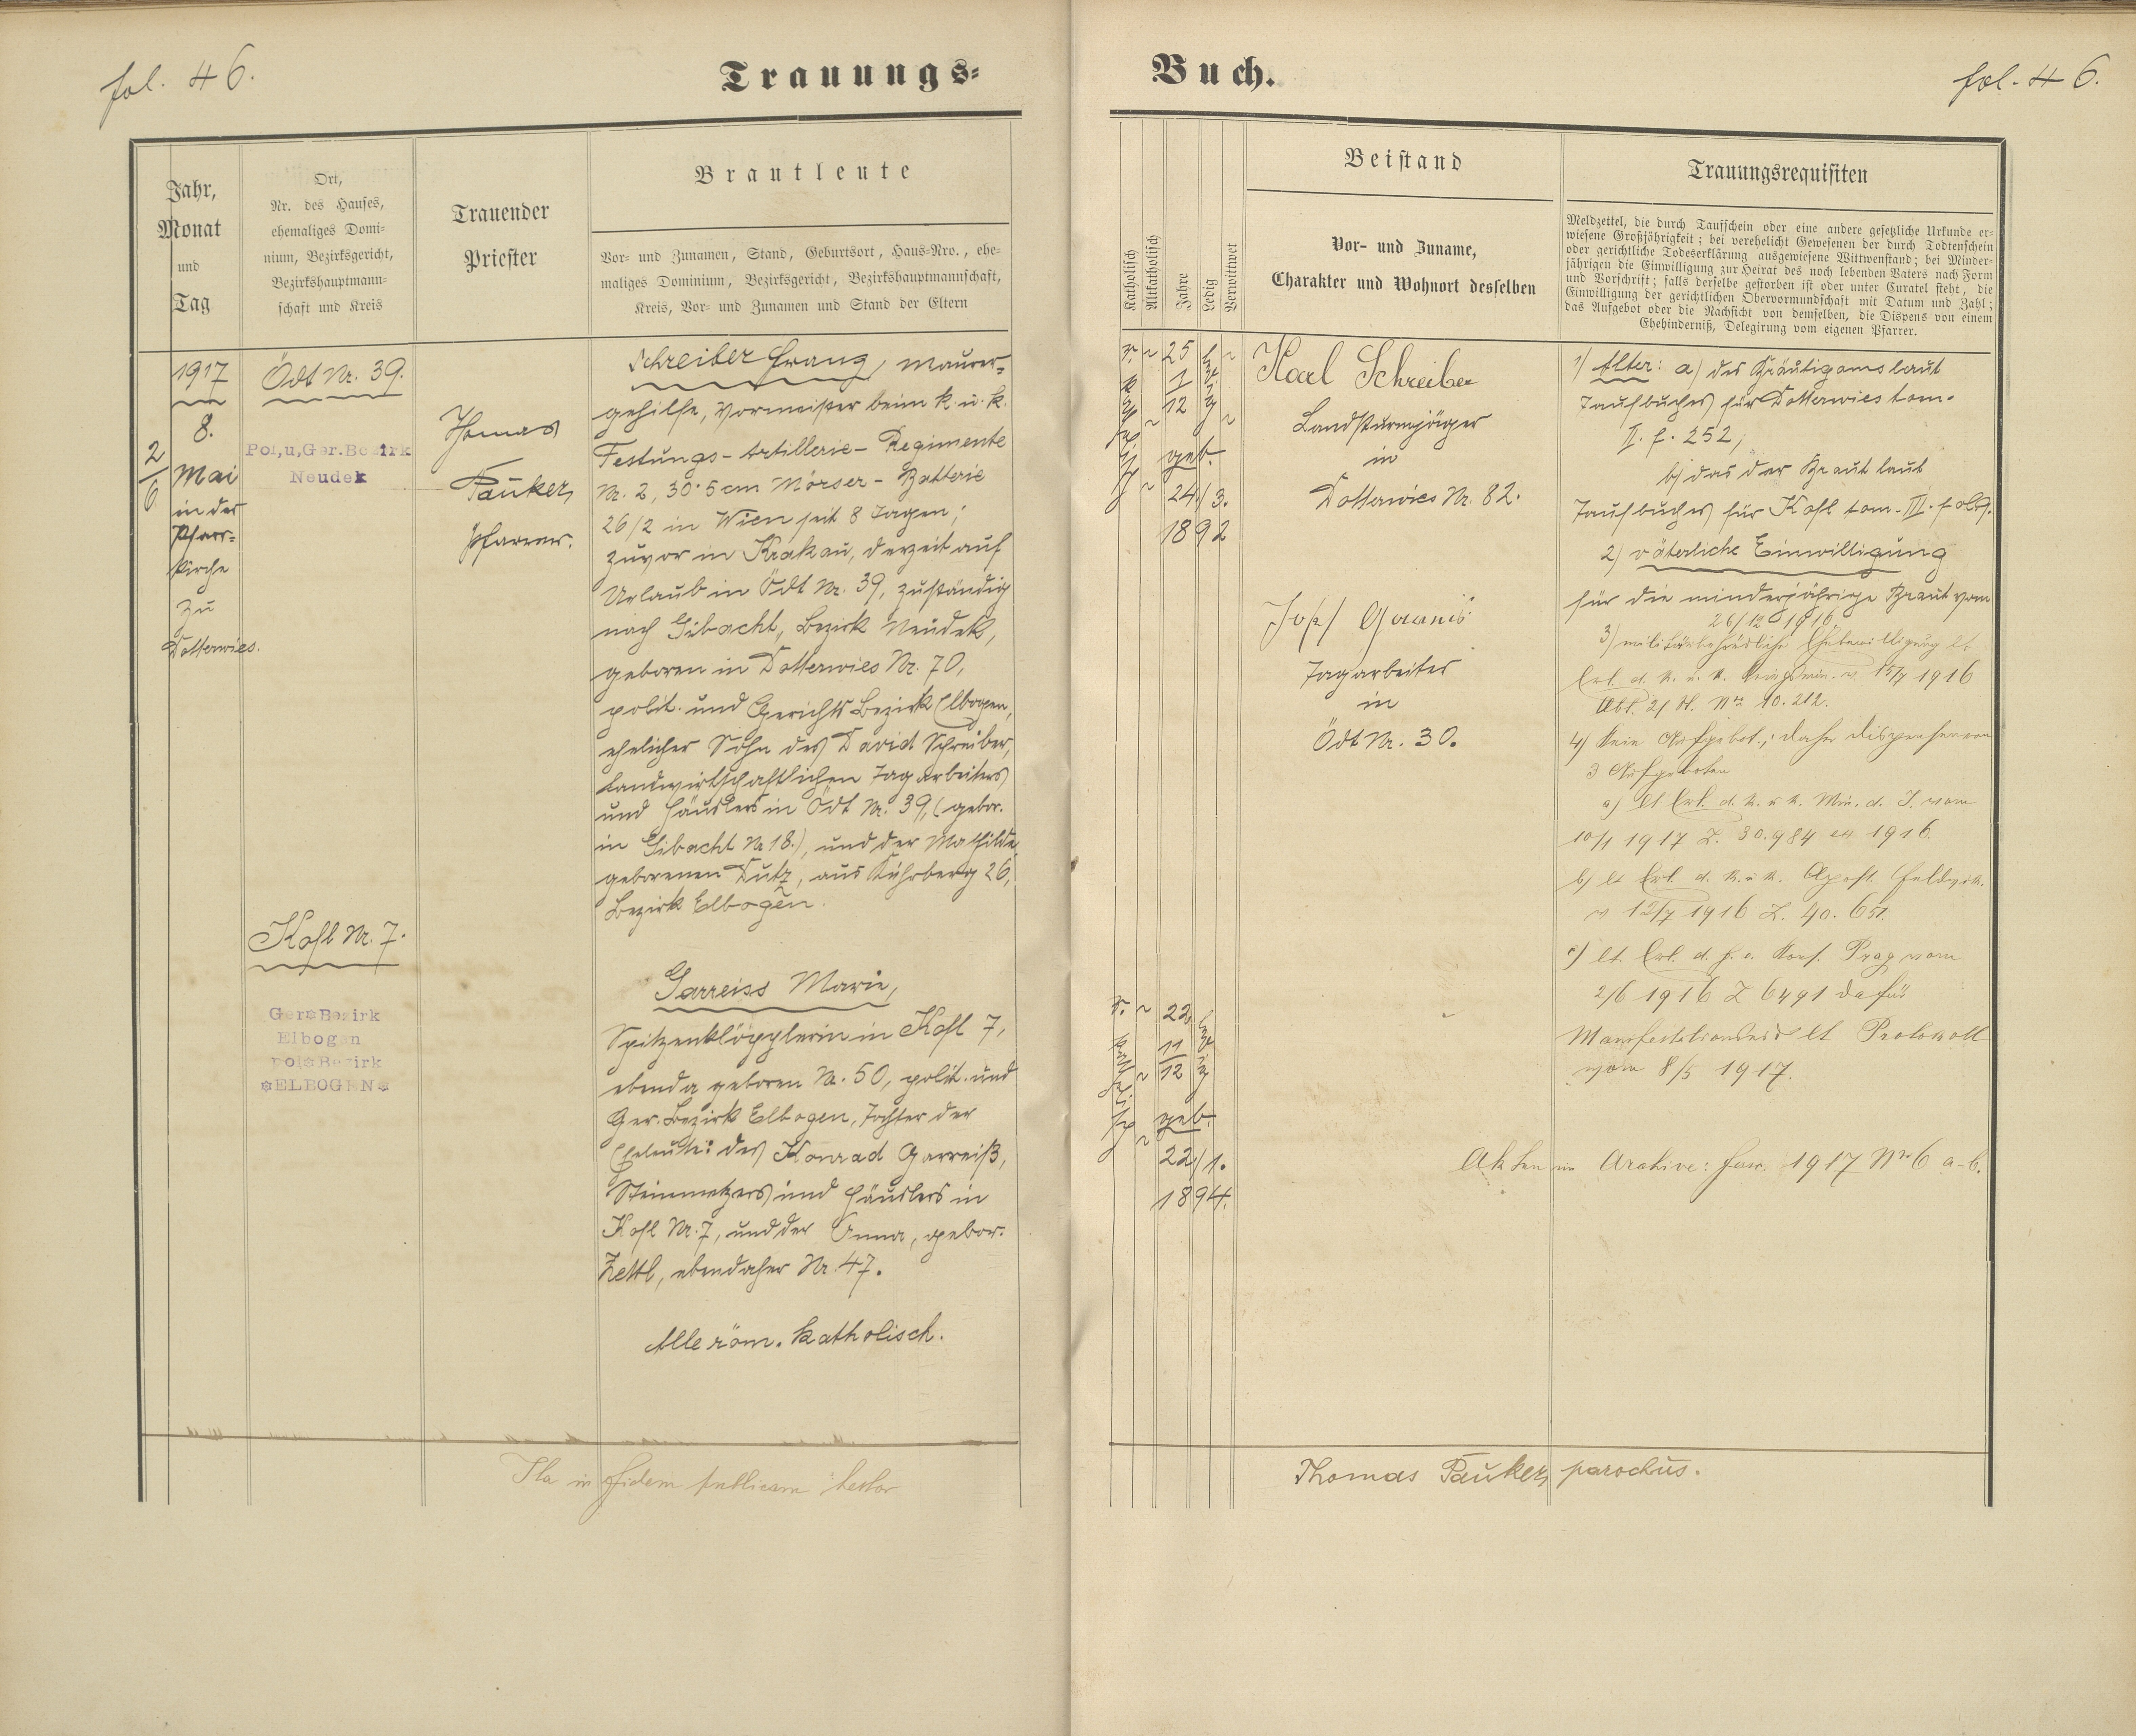 fol. 46.
Trauungs-
Jahr,
Monat
und
Tag
Ort,
Nr. des Hauses,
ehemaliges Domi-
nium, Bezirksgericht,
Bezirkshauptmann-
schaft und Kreis
Trauender
Priester
Brautleute
Vor- und Zunamen, Stand, Geburtsort, Haus-Nro., ehe-
maliges Dominium, Bezirksgericht, Bezirkshauptmannschaft,
Kreis, Vor- und Zunamen und Stand der Eltern
1917
8.
2/6
Mai
in der
Pfarr-
kirche
zu
Dotterwies.
Ödt Nr. 39.
Pol,u,Ger.Bezirk
Neudek
Kohl Nr. 7.
Ger※Bezirk
Elbogen
pol※Bezirk
※ELBOGEN※
Thomas
Pauker,
Pfarrer.
Schreiber Franz, Maurer-
gehilfe, Vormeister beim k. u. k.
Festungs-Artillerie-Regimente
Nr. 2, 30·5 cm Mörser-Batterie
26/2 in Wien seit 8 Tagen;
zuvor in Krakau, derzeit auf
Urlaub in Ödt Nr. 39, zuständig
nach Gibacht, Bezirk Neudek,
geboren in Dotterwies Nr. 70,
polit. und Gerichts Bezirk Elbogen,
ehelicher Sohn des David Schreiber,
landwirtschaftlichen Tagarbeiters
und Häuslers in Ödt Nr. 39, (gebor.
in Gibacht Nr 18.), und der Mathilde
geborenen Dutz, aus Kührberg 26,
Bezirk Elbogen.
Garreiss Marie,
Spitzenklöpplerin in Kohl 7,
ebenda geboren Nr. 50, polit. und
Ger. Bezirk Elbogen, Tochter der
Eheleute: des Konrad Garreiß,
Steinmetzers und Häuslers in
Kohl Nr. 7, und der Anna, gebor.
Zettl, ebendaher Nr. 47.
Alle röm. katholisch.
Ita in fidem publicam testor
Buch.
fol. 46.
Katholisch
Altkatholisch
Jahre
Ledig
Verwittwet
Beistand
Vor- und Zuname,
Charakter und Wohnort desselben
Trauungsrequisiten
Meldzettel, die durch Taufschein oder eine andere gesetzliche Urkunde er-
wiesene Großjährigkeit; bei verehelicht Gewesenen der durch Todtenschein
oder gerichtliche Todeserklärung ausgewiesene Wittwenstand; bei Minder-
jährigen die Einwilligung zur Heirat des noch lebenden Vaters nach Form
und Vorschrift; falls derselbe gestorben ist oder unter Curatel steht, die
Einwilligung der gerichtlichen Obervormundschaft mit Datum und Zahl;
das Aufgebot oder die Nachsicht von demselben, die Dispens von einem
Ehehinderniß, Delegirung vom eigenen Pfarrer.
r. katholisch
25 1/12
ledig
geb.
24/3.
1892
Karl Schreiber
Landsturmjäger
in
Dotterwies Nr. 82.
Tagarbeiter
in
Ödt Nr. 30.
r. katholisch
22 11/12
ledig
geb.
22/1.
1894.
1) Alter: a) des Bräutigams laut
Taufbuches für Dotterwies tom.
II. f. 252;
b) das der Braut laut
Taufbuches für Kohl tom. III. fol
2) väterliche Einwilligung
für die minderjährige Braut vom
26/12 1916
3) militärbehördliche Ehebewilligung lt
Erl. d. k. u. k. Kriegsmin. v. 15/7 1916
Abt. 2/ Nr. 10.212.
4) Kein Aufgebot; daher Dispensen von
3 Aufgeboten
a) lt Erl. d. k. u k. Min. d. I. vom
10/1 1917 Z. 30.984 ex 1916.
b) lt Erl. d. k. u k. Apost. Feldvik.
v 12/7 1916 Z. 40.651.
c) lt. Erl. d. f. e. Kons. Prag vom
2/6 1916 Z 6491 dafür
Manifestationseid lt Protokoll
vom 8/5 1917.
Akten im Archive: fasc. 1917 Nr 6 a-b.
Thomas Pauker, parochus.